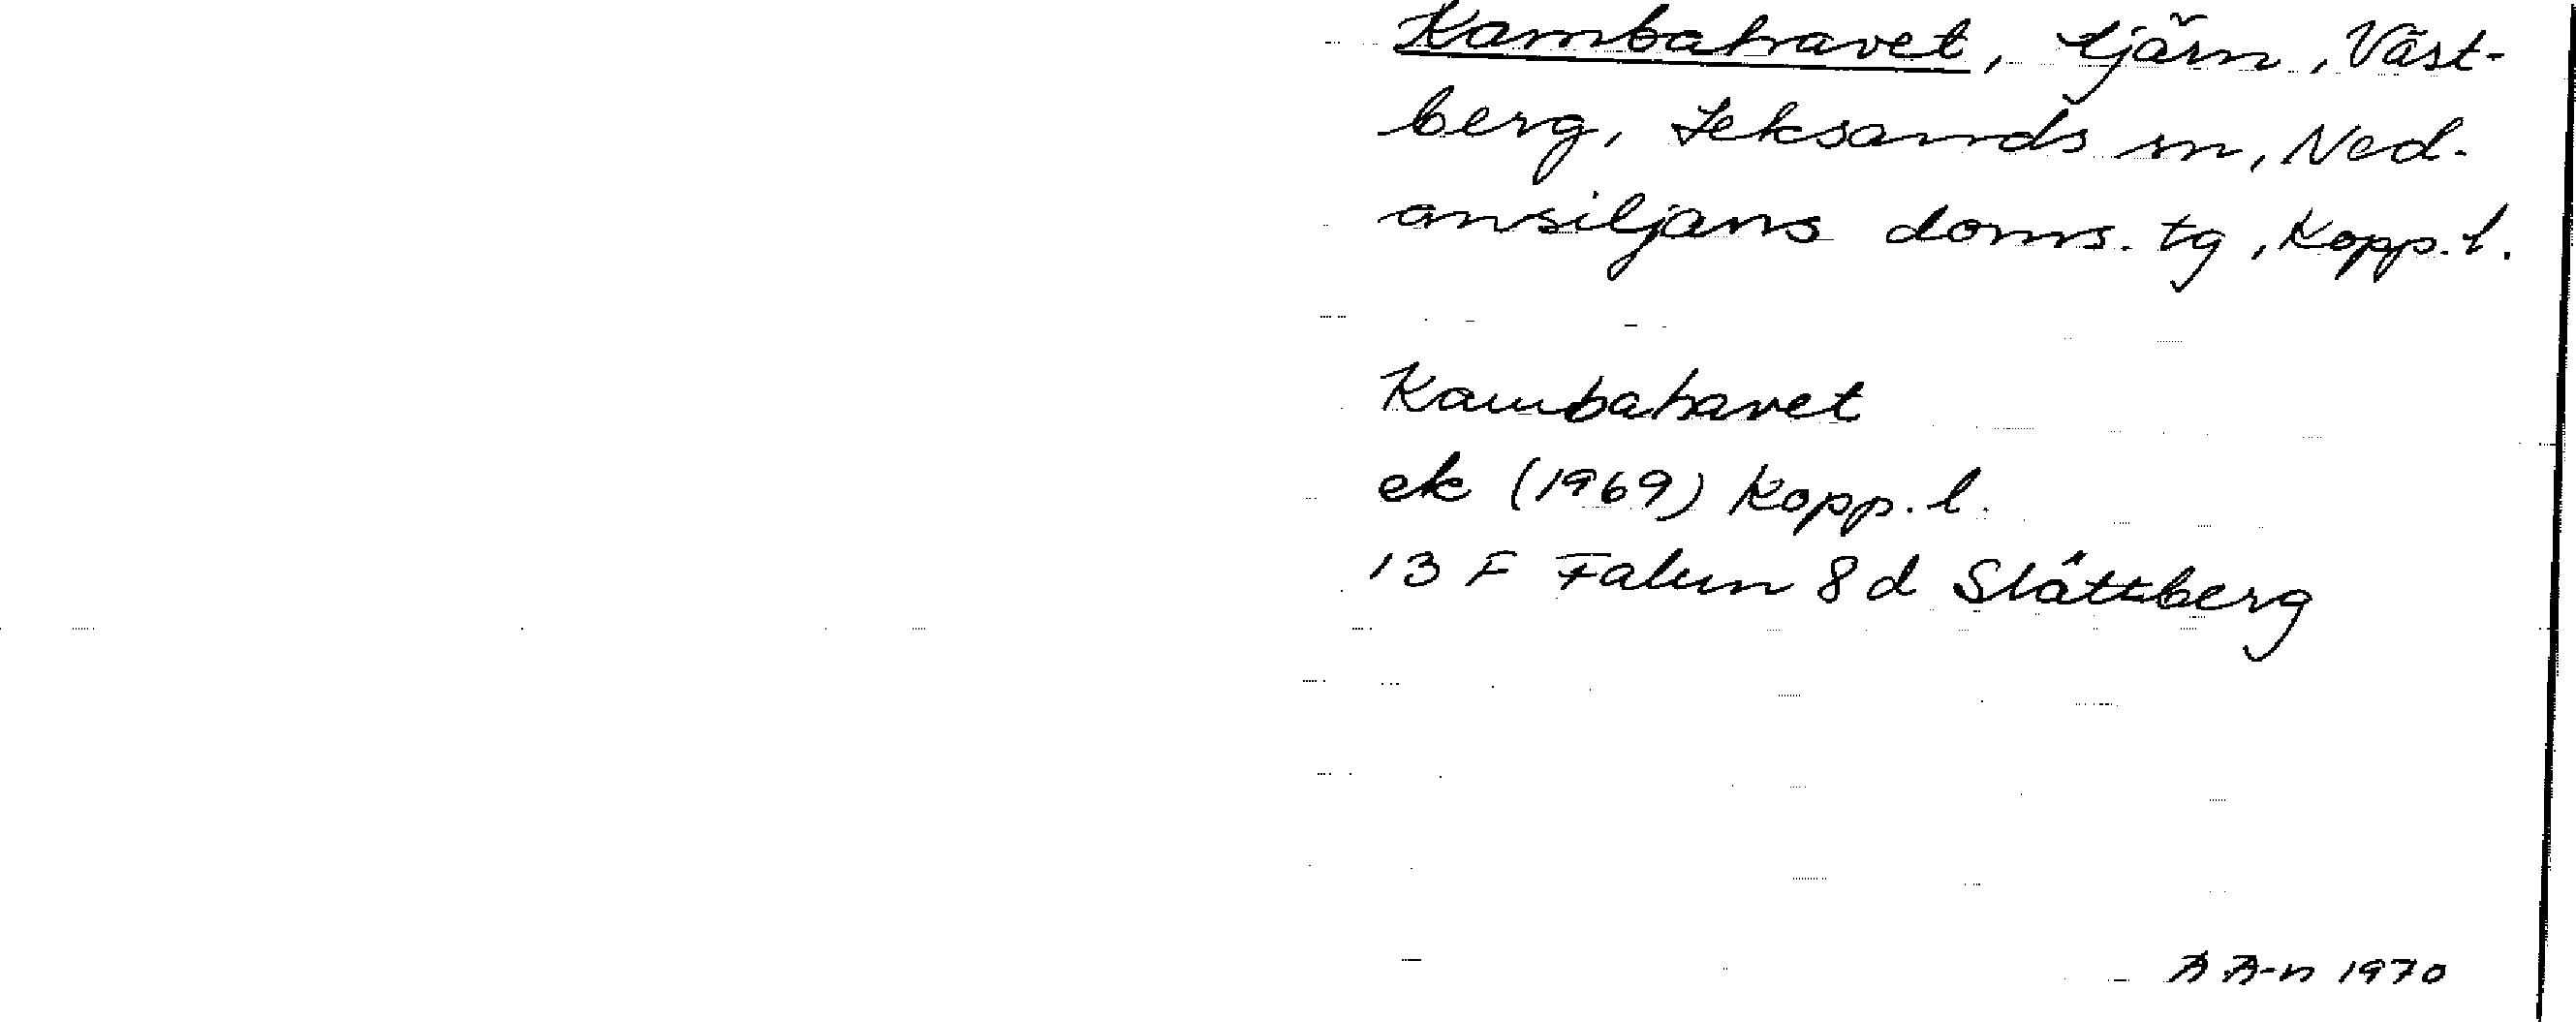 Kambahavet, tjärn, Väst-
berg, Leksands sn, Ned-
ansiljans doms. tg, Kopp. l.
Kambahavet
ek (1969) Kopp. l.
13 F Falun 8 d Slättberg
A A-n 1970